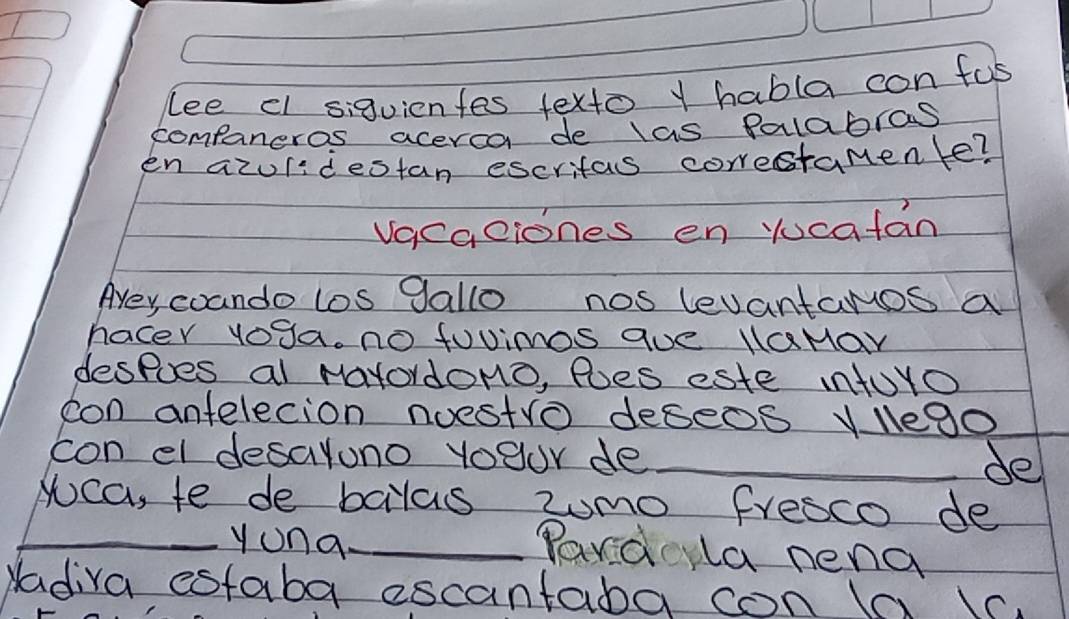 Lee el siguientes texto y habla con tus
companeros acerca de las Palabras
en azul: ¿estan escritas correctamente?
vacaciónes en yucatán
Ayer, cuando los gallo nos levantamos a
hacer yoga. no tuvimos que llamar
despues al mayordomo, Pues este intuyo
con antelecion nuestro deseos y llego
con el desayuno yogur de ________ de
yuca, te de bayas zumo fresco de
________ y una ________ Para la nena
Yadira estaba escantaba con la